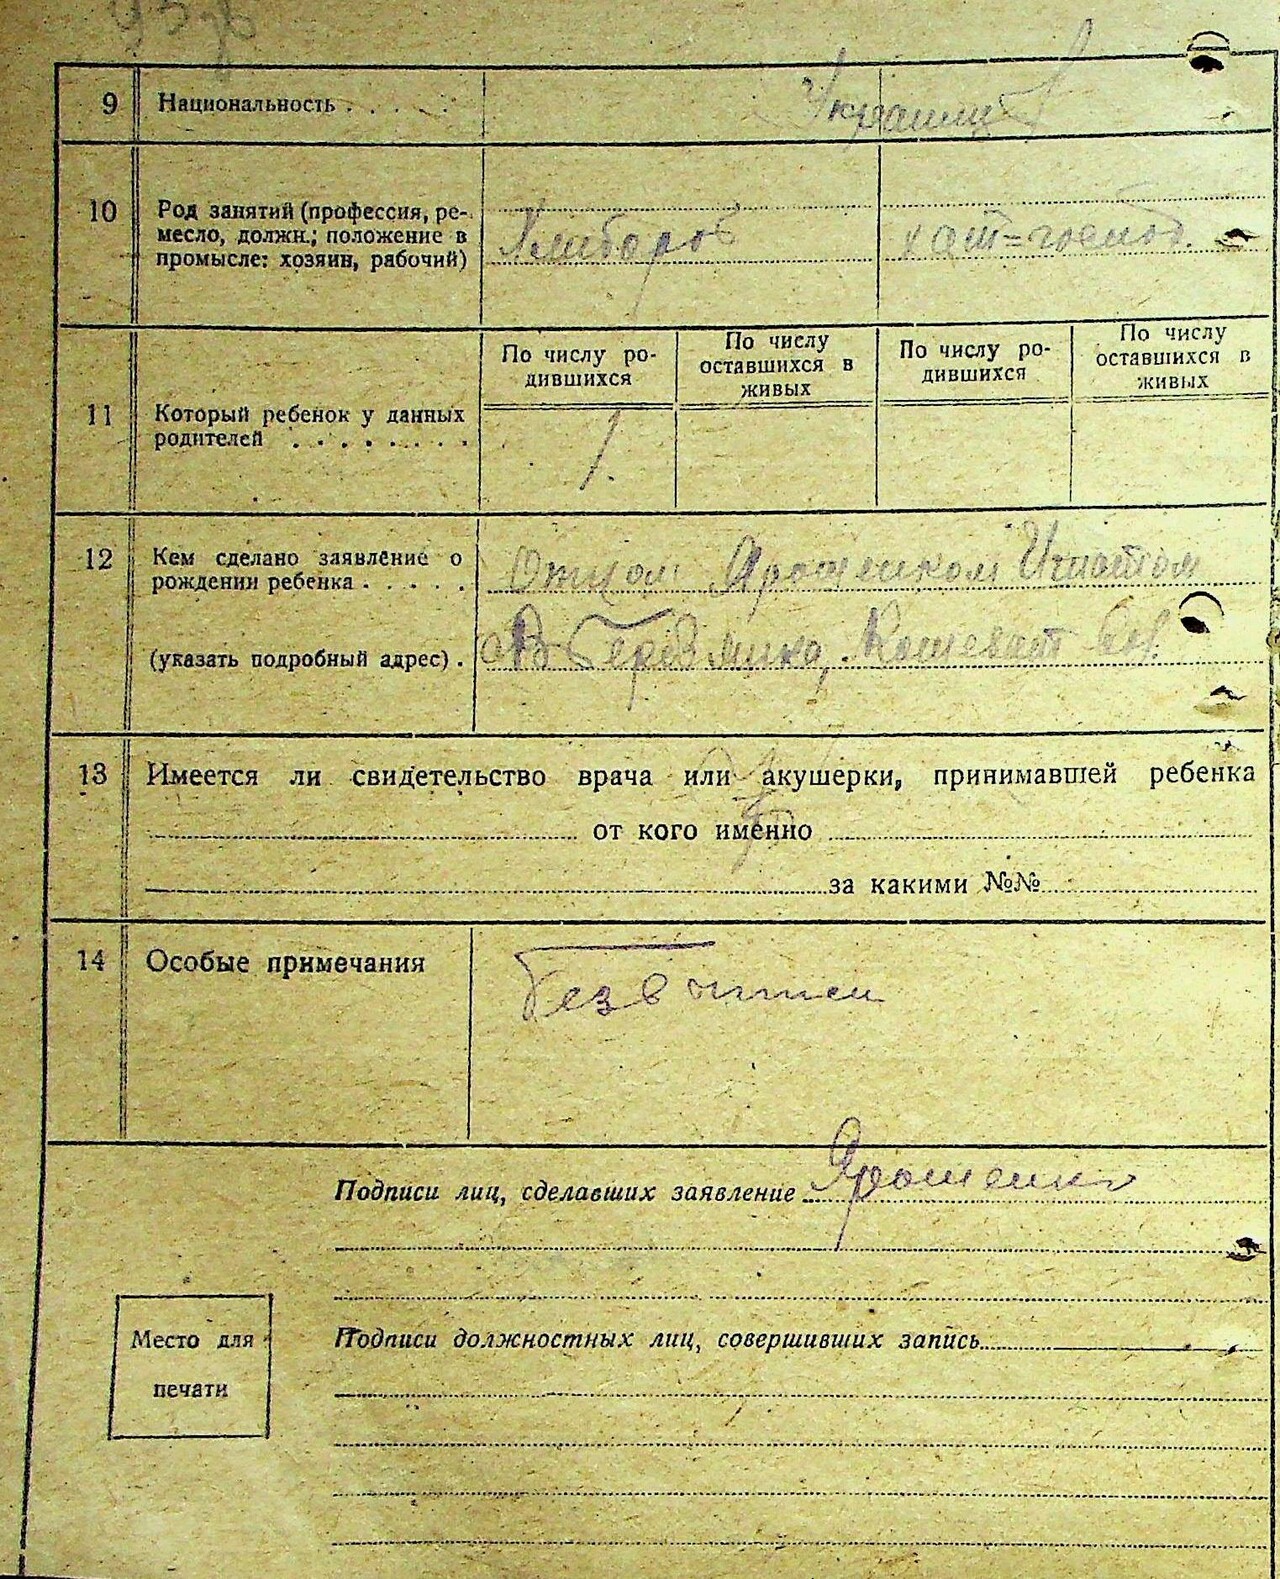 9 Национальность . . . . . Украинц
10 Род занятий (профессия, ре-
месло, должн.; положение в
промысле: хозяин, рабочий)
Хлибороб
11 Который ребенок у данных
родителей . . . . . . . .
По числу ро-
дившихся
По числу
оставшихся в
живых
По числу ро-
дившихся
По числу
оставшихся в
живых
1
12 Кем сделано заявление о
рождении ребенка . . . . .
Отцом Ярошенком Игнатом
(указать подробный адрес) .
13 Имеется ли свидетельство врача или акушерки, принимавшей ребенка
от кого именно
за какими №№
14 Особые примечания
Без
Подписи лиц, сделавших заявление Ярошенко
Место для
печати
Подписи должностных лиц, совершивших запись